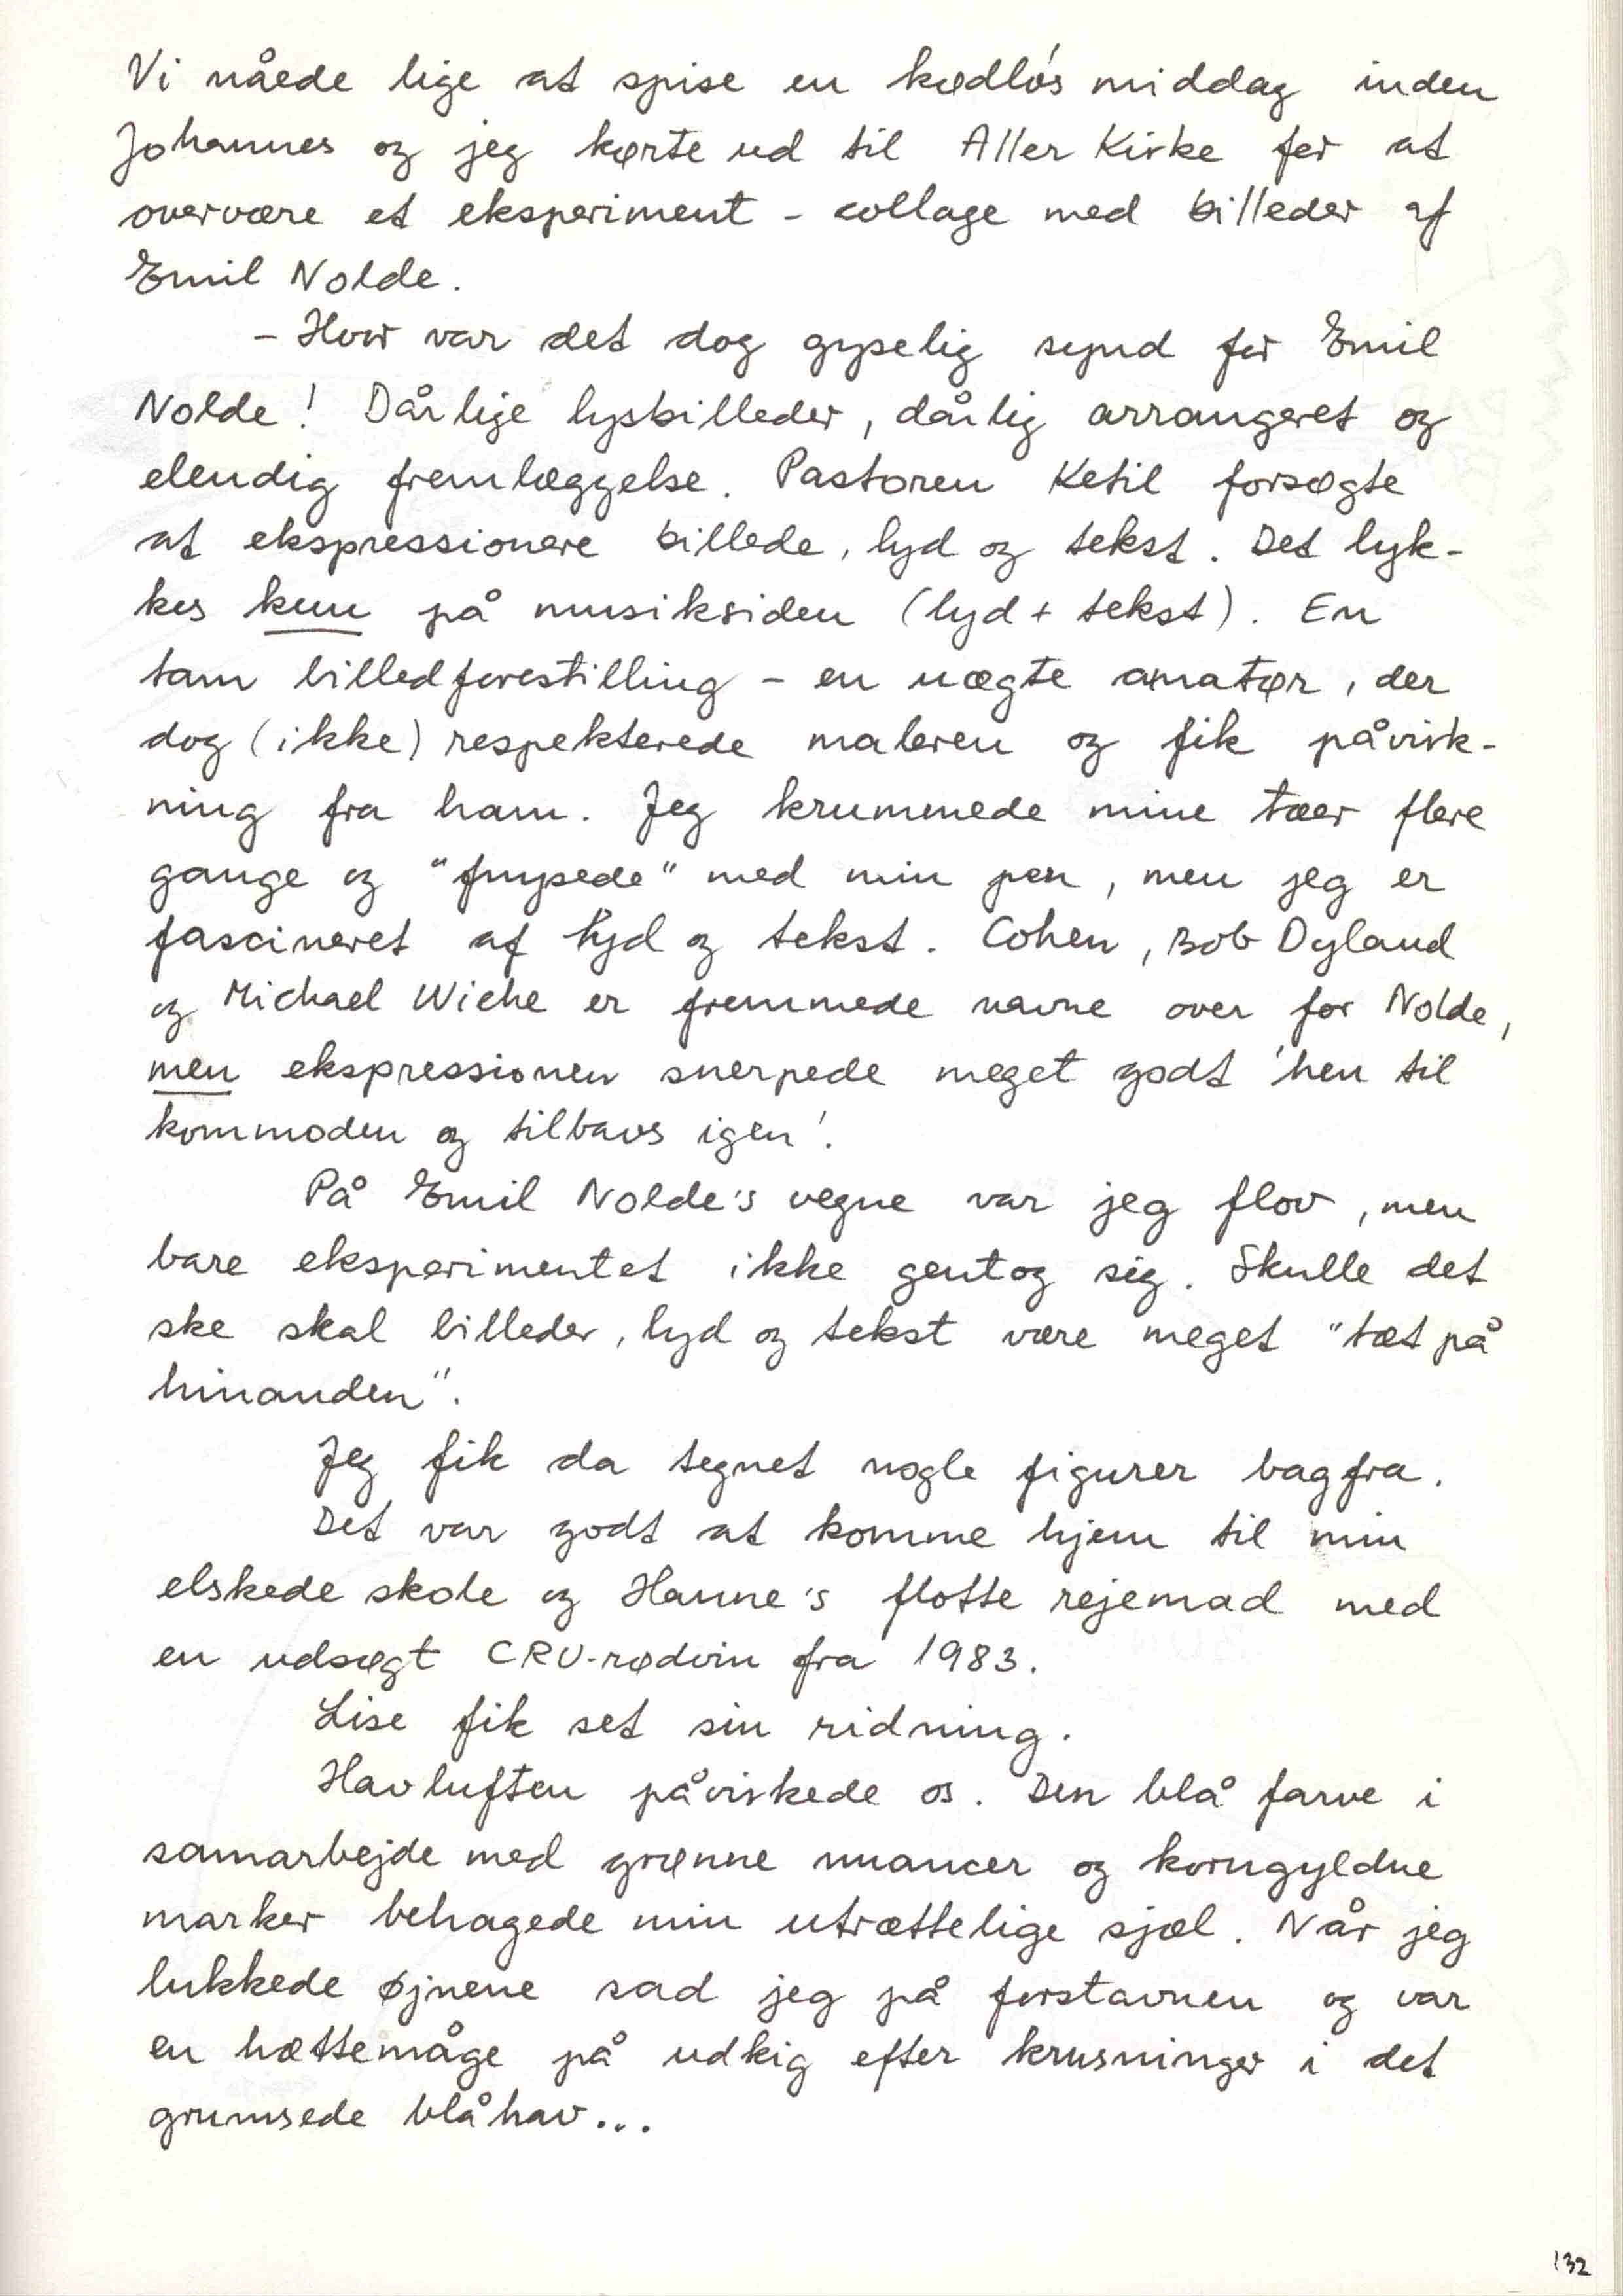 Vi nåede lige at spise en kødløs middag inden
Johannes og jeg kørte ud til Aller Kirke for at
overvære et eksperiment - collage med billeder af
Emil Nolde.
- Hvor var det dog gyselig synd for Emil
Nolde! Dårlige lysbilleder, dårlig arrangeret og
elendig fremlæggelse. Pastoren Ketil forsøgte
at ekspressionere billede, lyd og tekst. Det lyk-
kes kun på musiksiden (lyd + tekst). En
tam billedforestilling - en uægte amatør, der
dog (ikke) respekterede maleren og fik påvirk-
ning fra ham. Jeg krummede mine tæer flere
gange og "fnysede" med min pen, men jeg er
fascineret af lyd og tekst. Cohen, Bob Dyland
og Michael Wiehe er fremmede navne over for Nolde,
men ekspressionen snerpede meget godt 'hen til
kommoden og tilbavs igen'.
På Emil Nolde's vegne var jeg flov, men
bare eksperimentet ikke gentog sig. Skulle det
ske skal billeder, lyd og tekst være meget "tæt på
hinanden".
Jeg fik da tegnet nogle figurer bagfra.
Det var godt at komme hjem til min
elskede skole og Hanne's flotte rejemad med
en udsøgt CRU-rødvin fra 1983.
Lise fik set sin ridning.
Havluften påvirkede os. Den blå farve i
samarbejde med grønne nuancer og korngyldne
marker behagede min utrættelige sjæl. Når jeg
lukkede øjnene sad jeg på forstavnen og var
en hættemåge på udkig efter krusninger i det
grumsede blåhav...
132